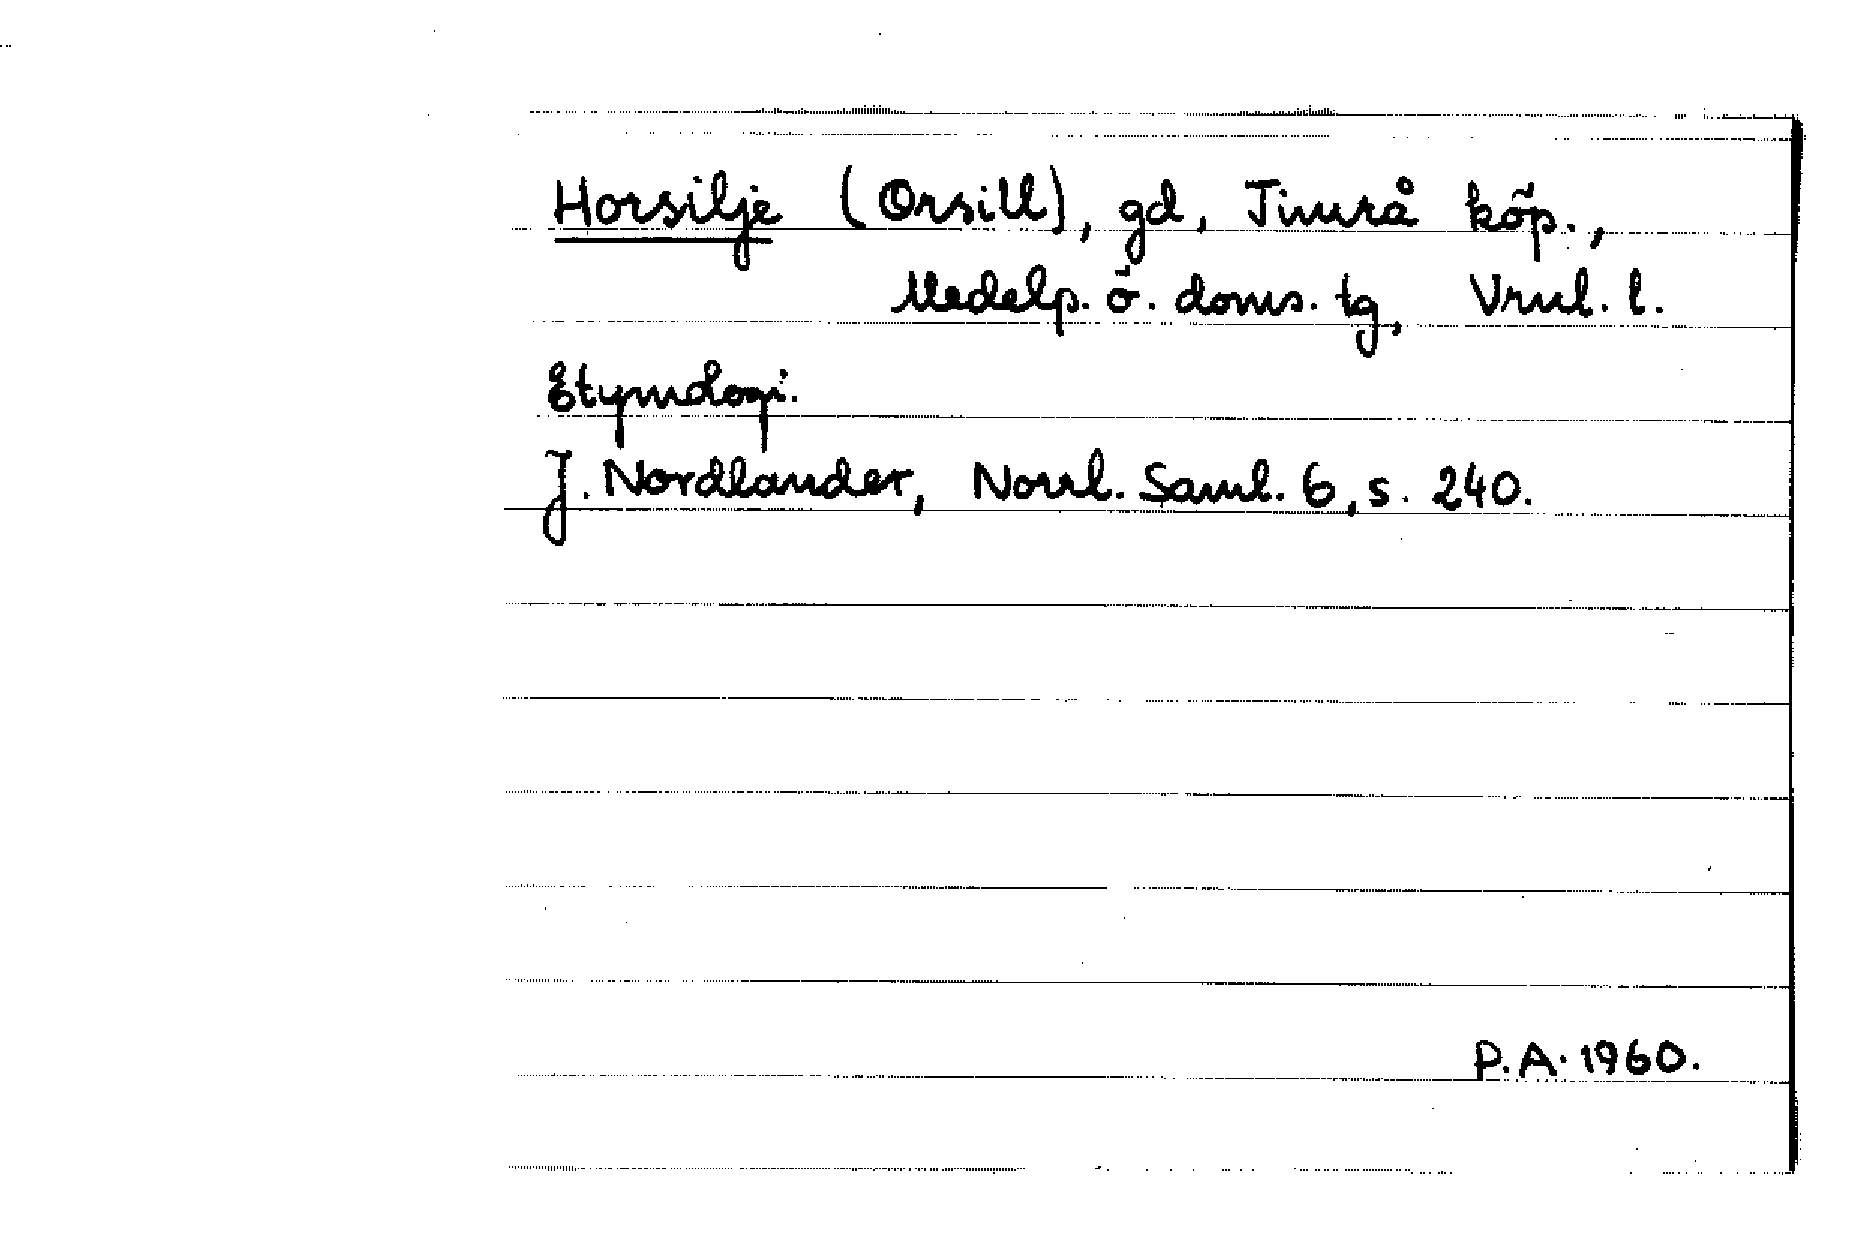 Horsilje (Orsill), gd, Timrå köp.,
Medelp. ö. doms. tg, Vrnl. l.
Etymologi.
J. Nordlander, Norrl. Saml. 6, s. 240.
P.A. 1960.